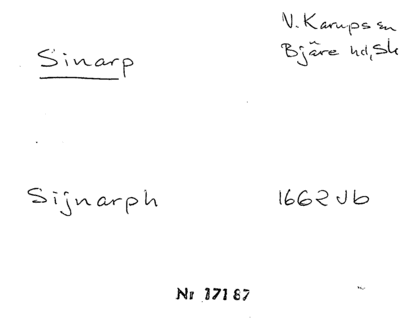 Sinarp
V. Karups sn
Bjäre hd, Sk
Sijnarph
1662 Jb
Nr 17187